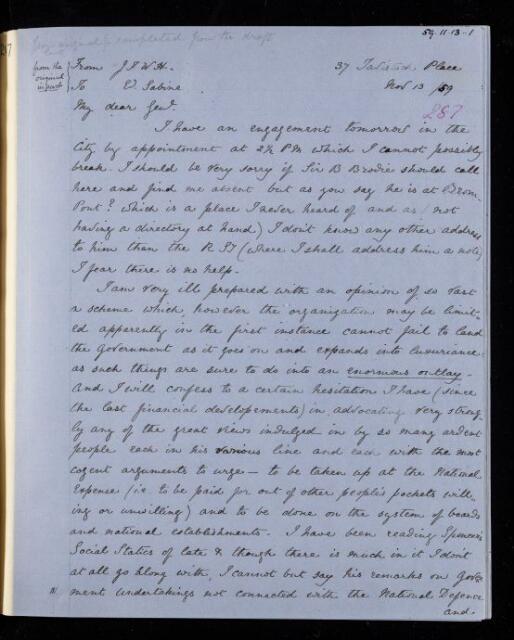 59.11.13-1
from the original in part
From J F W H.
37 Tavistock Place
To E. Sabine
Nov 13 /59
287
My dear Genl.
I have an engagement tomorrow in the
City by appointment at 2½ PM which I cannot possibly
break. I should be very sorry if Sir B Brodie should call
here and find me absent but as you say he is at Brom-
Pont? which is a place I never heard of and as (not
having a directory at hand) I don't know any other address
to him than the R. S. (where I shall address him a note)
I fear there is no help.
I am very ill prepared with an opinion of so vast
a scheme which, however the organization may be limit-
ed apparently in the first instance cannot fail to land
the Government as it goes on and expands into luxuriance
as such things are sure to do into an enormous outlay.
And I will confess to a certain hesitation I have (since
the last financial developements) in advocating very strong
ly any of the great views indulged in by so many ardent
people each in his various line and each with the most
cogent arguments to urge - to be taken up at the National
Expense (ie to be paid for out of other people's pockets will-
ing or unwilling) and to be done on the system of boards
and national establishments. I have been reading Spencer's
Social Statics of late & though there is much in it I don't
at all go along with, I cannot but say his remarks on Govern
ment undertakings not connected with the National Defence
and